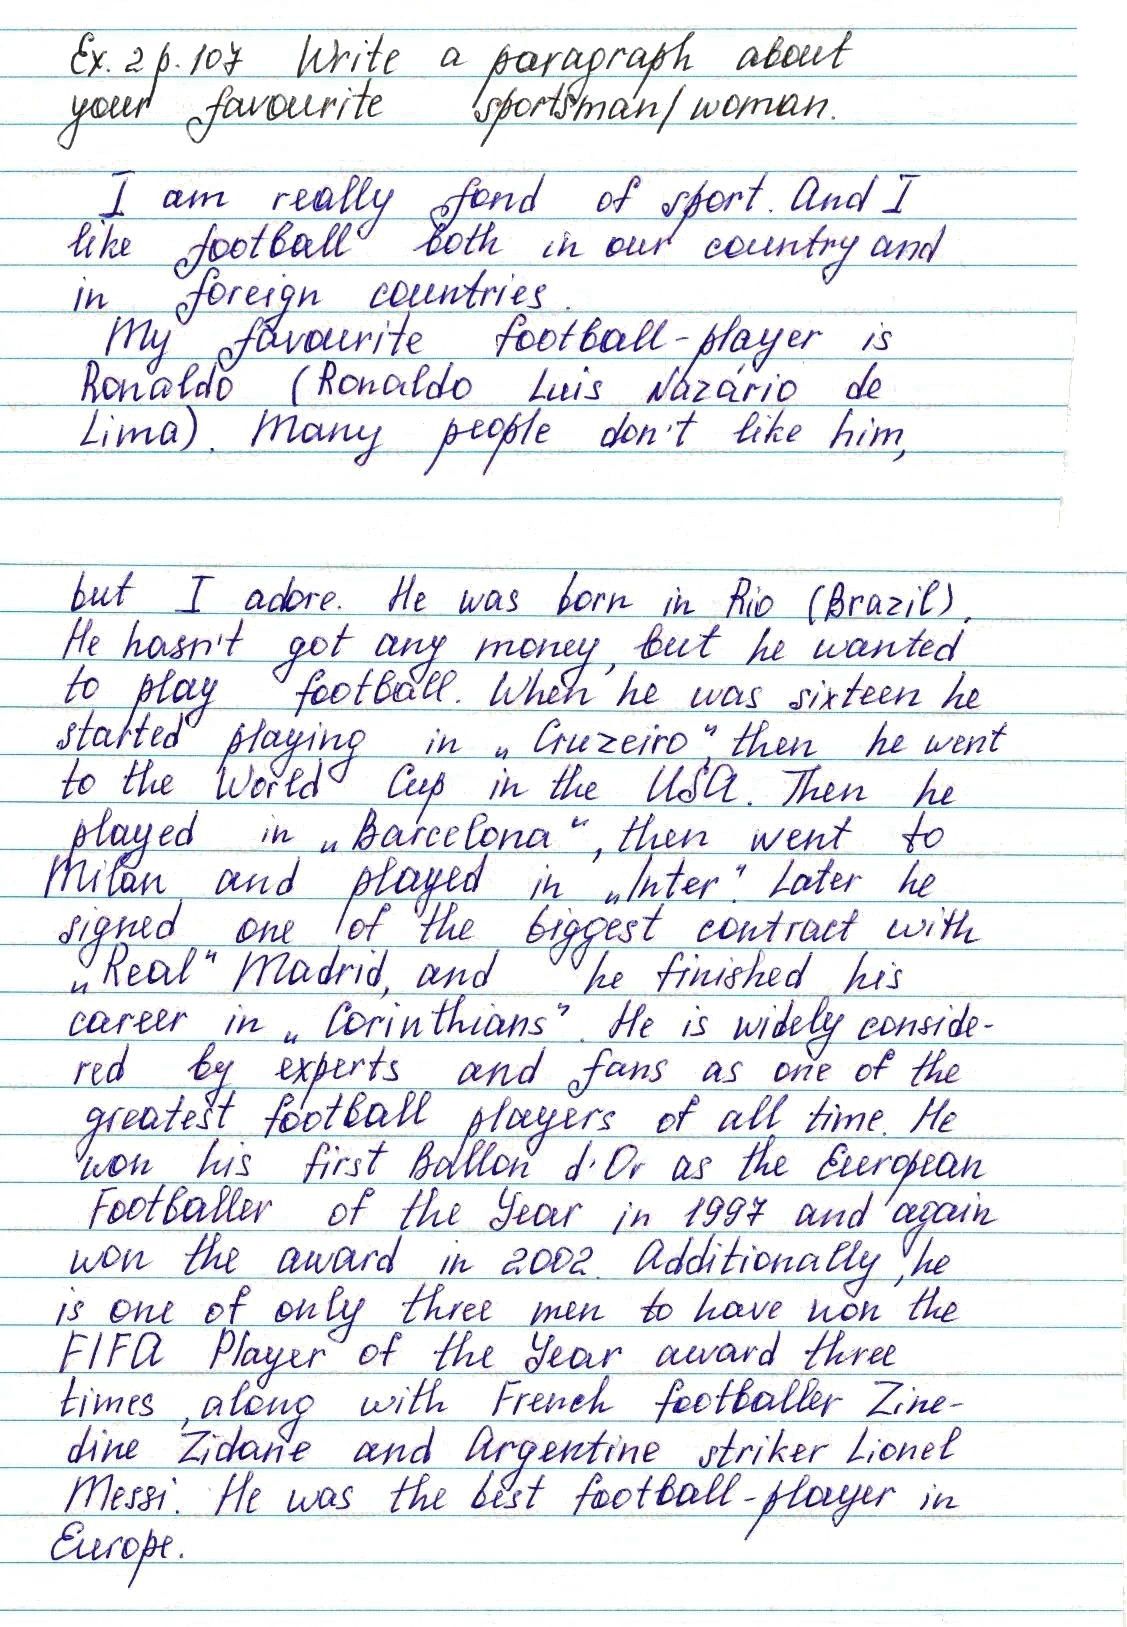 Ex. 2 p. 107 Write a paragraph about
your favourite sportsman/woman.
I am really fond of sport. And I
like football both in our country and
in foreign countries.
My favourite football-player is
Ronaldo (Ronaldo Luis Nazário de
Lima). Many people don't like him,
but I adore. He was born in Rio (Brazil).
He hasn't got any money, but he wanted
to play football. When he was sixteen he
started playing in „Cruzeiro”, then he went
to the World Cup in the USA. Then he
played in „Barcelona“, then went to
Milan and played in „Inter”. Later he
signed one of the biggest contract with
„Real“ Madrid, and he finished his
career in „Corinthians”. He is widely conside-
red by experts and fans as one of the
greatest football players of all time. He
won his first Ballon d'Or as the European
Footballer of the Year in 1997 and again
won the award in 2002. Additionally, he
is one of only three men to have won the
FIFA Player of the Year award three
times, along with French footballer Zine-
dine Zidane and Argentine striker Lionel
Messi. He was the best football-player in
Europe.